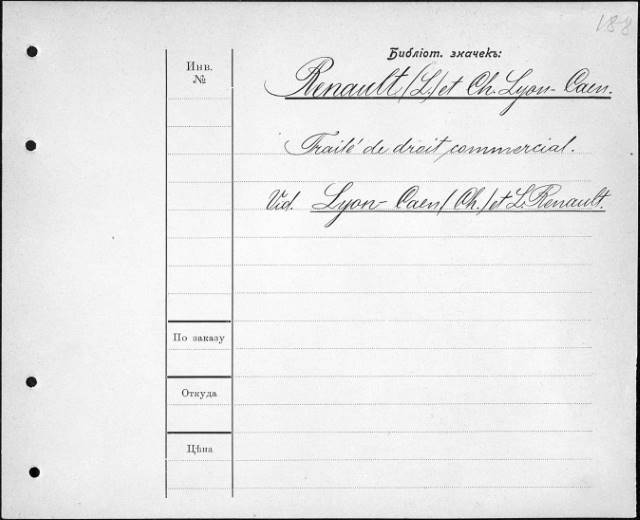 188
Библіот. значекъ:
Инв.
№
Renault (L.) et Ch. Lyon-Caen.
Traité de droit commercial.
Vid. Lyon-Caen (Ch.) et L. Renault.
По заказу
Откуда
Цѣна